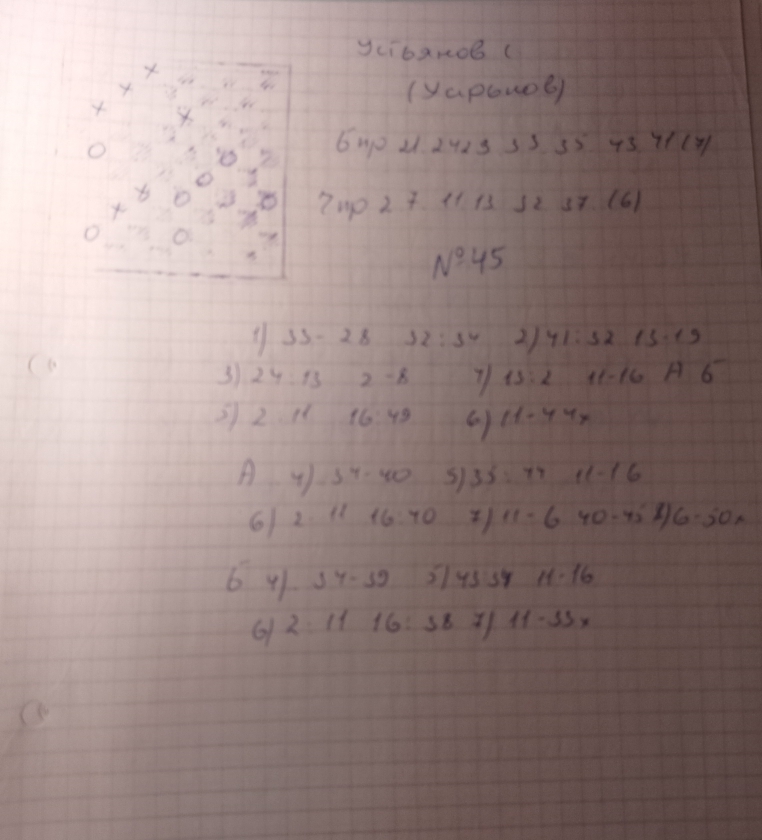 Устьянов С
(Харьков)
б пр 21 24 29 33 35 43 41 (7)
ч пр 2 7 11 13 32 37 (6)
№ 45
1) 33-28 32:34 2) 41:32 13-19
3) 24:13 2-8 4) 13:2 11-16 А Б
5) 2:11 16:49 6) 11-44x
А 4) 34-40 5) 35:44 11-16
6) 2:11 16:40 7) 11-6 40-45 8) 6-50x
Б 4) 34-39 5) 43:34 11-16
6) 2:11 16:38 7) 11-33x